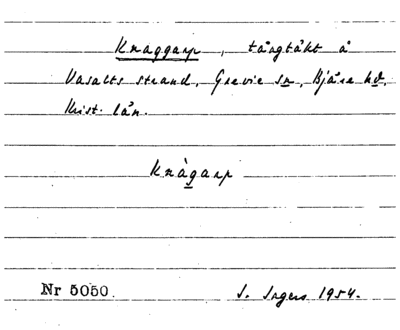 Knaggarp, tångtäkt å
Vasalts strand, Grevie sn, Bjäre hd,
Krist. län.
Knàgarp
Nr 5050.
S. Ingers 1954.